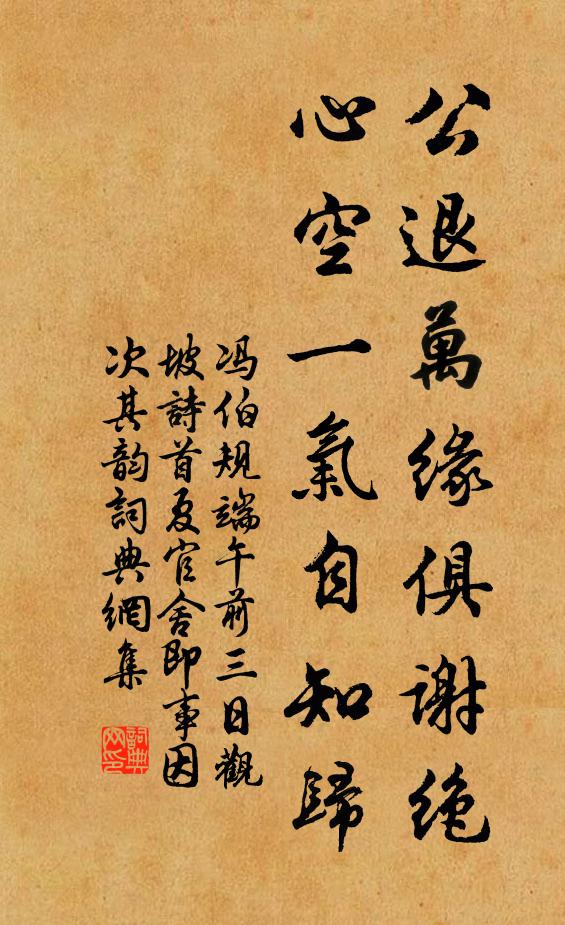 公退萬緣俱謝絶
心空一氣自知歸
冯伯规端午前三日觀
坡詩首夏官舍即事因
次其韵詞典網集
詞典网印